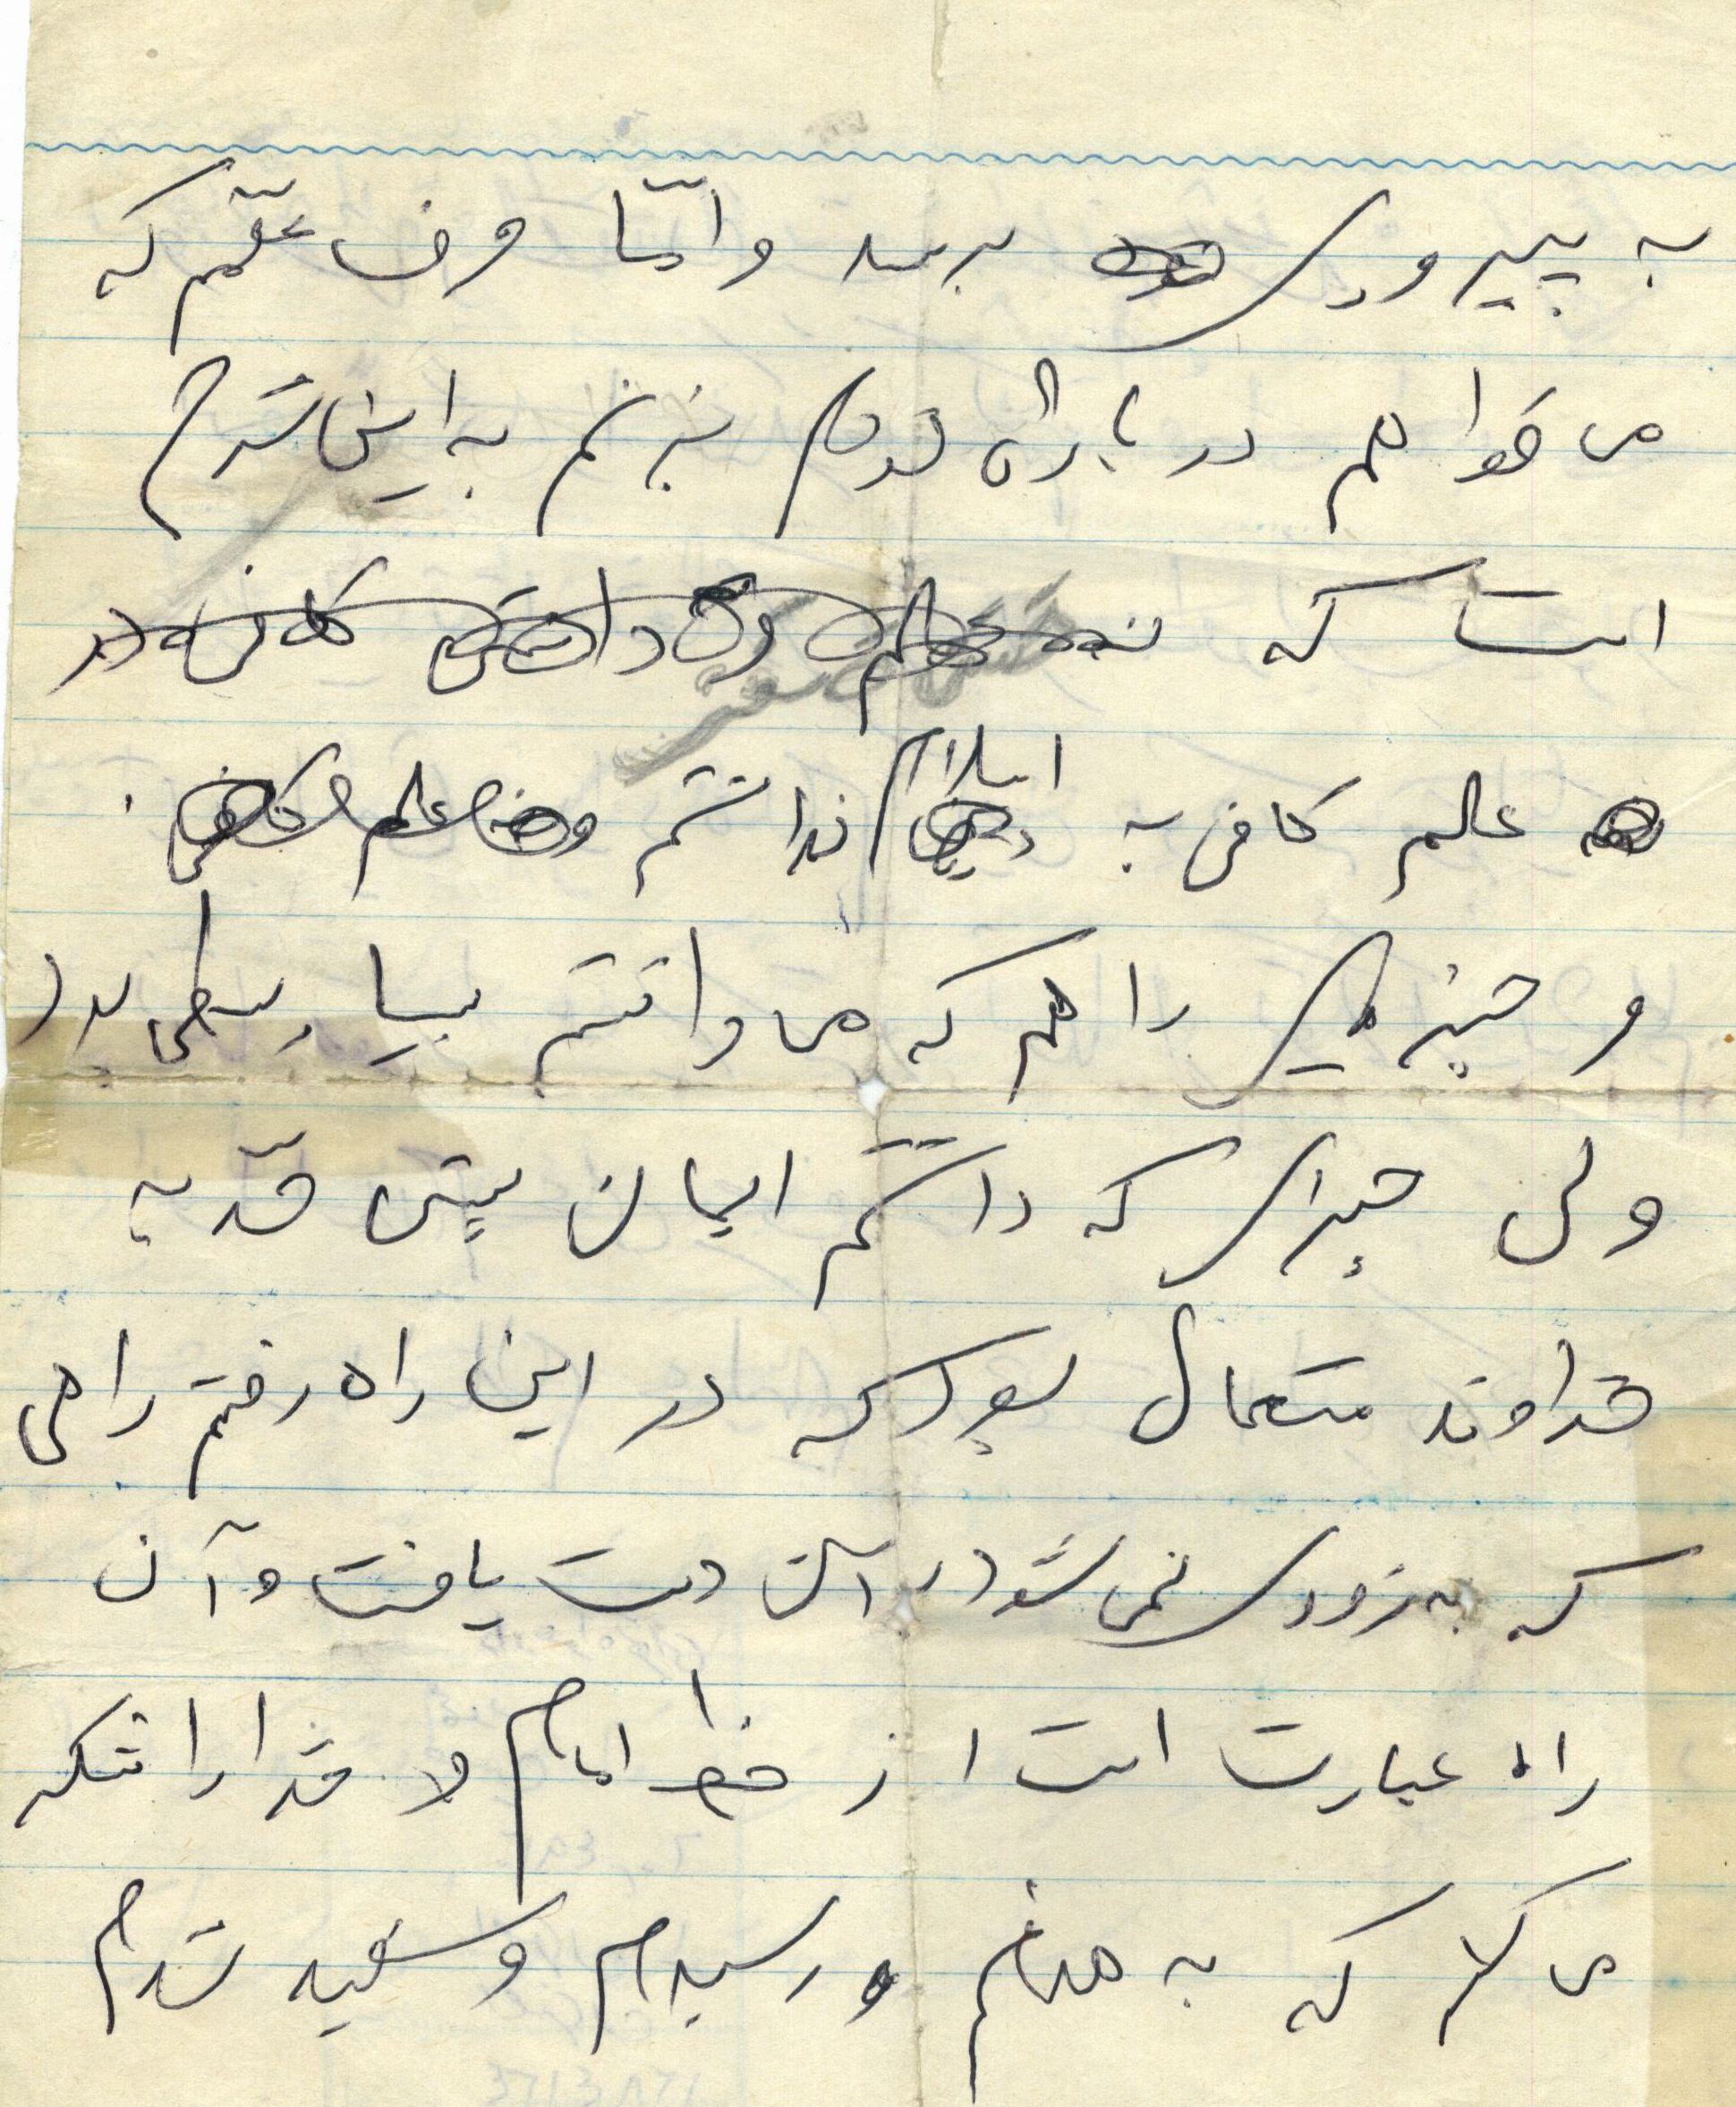 به پیروزی برسد و امّا حرف عقّم که
می خواهم درباره‌ی خودم بزنم به این شرح
است که
علم کافی به اسلام نداشتم
و چیزهایی را هم که می دانستم بسیار سطحی بود
ولی چیزی که داشتم ایمان بیش حدّ به
خداوند متعال بود که در این راه رفتم راهی
که به زودی نمی شود در آن دست یافت و آن
راه عبارت است از خط امام و خدا را شکر
می کنم که به هدفم رسیدم و شهید شدم